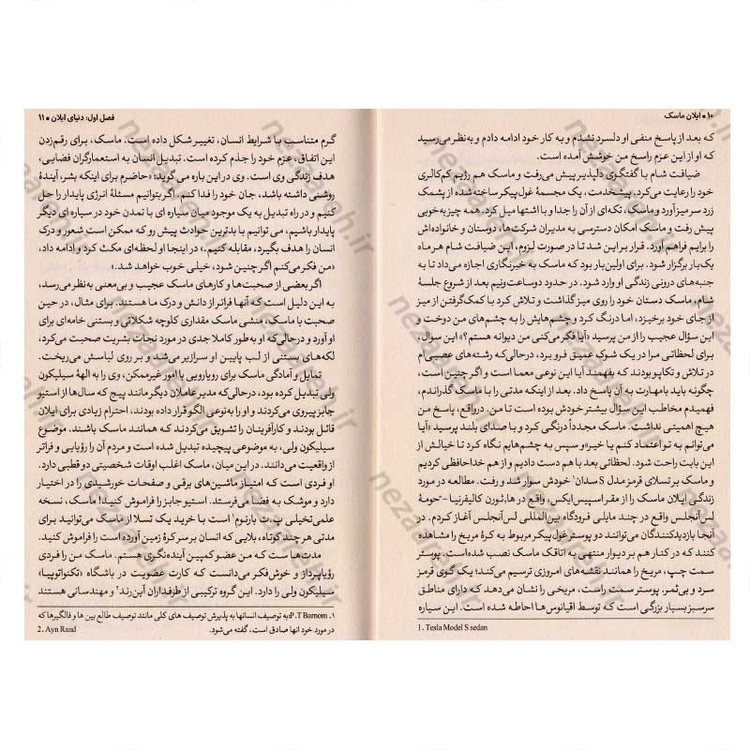 ۱۰ ▪ ایلان ماسک
که بعد از پاسخ منفی او دلسرد نشدم و به کار خود ادامه دادم و به‌نظر می‌رسید
که او از این عزم راسخ من خوشش آمده است.
ضیافت شام با گفتگوی دلپذیر پیش می‌رفت و ماسک هم رژیم کم‌کالری
خود را رعایت می‌کرد. پیشخدمت، یک مجسمهٔ غول‌پیکر ساخته‌شده از پشمک
زرد سر میز آورد و ماسک، تکه‌ای از آن را جدا و با اشتها میل کرد. همه چیز به‌خوبی
پیش رفت و ماسک امکان دسترسی به مدیران شرکت‌ها، دوستان و خانواده‌اش
را برایم فراهم آورد. قرار بر این شد تا در صورت لزوم، این ضیافت شام هر ماه
یک‌بار برگزار شود. برای اولین‌بار بود که ماسک به خبرنگاری اجازه می‌داد تا به
جنبه‌های درونی زندگی او وارد شود. در حدود دو ساعت‌ونیم بعد از شروع جلسهٔ
شام، ماسک دستان خود را روی میز گذاشت و تلاش کرد با کمک‌گرفتن از میز
از جای خود برخیزد، اما درنگ کرد و چشم‌هایش را به چشم‌های من دوخت و
این سؤال عجیب را از من پرسید «آیا فکر می‌کنی من دیوانه هستم؟» این سوال،
برای لحظاتی مرا در یک شوک عمیق فرو برد، درحالی‌که رشته‌های عصبی‌ام
در تلاش و تکاپو بودند که بفهمند آیا این نوعی معما است و اگر چنین است،
چگونه باید بامهارت به آن پاسخ داد. بعد از اینکه مدتی را با ماسک گذراندم،
فهمیدم مخاطب این سؤال بیشتر خودش بوده است تا من. درواقع، پاسخ من
هیچ اهمیتی نداشت. ماسک مجدداً درنگی کرد و با صدای بلند پرسید «آیا
می‌توانم به تو اعتماد کنم یا خیر» و سپس به چشم‌هایم نگاه کرد تا خیالش از
این بابت راحت شود. لحظاتی بعد با هم دست دادیم و از هم خداحافظی کردیم
و ماسک بر تسلای قرمز مدل S سدان¹ خودش سوار شد و رفت. مطالعه در مورد
زندگی ایلان ماسک را از مقر اسپیس‌ایکس، واقع در هاثورن کالیفرنیا -حومهٔ
لس‌آنجلس واقع در چند مایلی فرودگاه بین‌المللی لس‌آنجلس آغاز کردم. در
آنجا بازدیدکنندگان می‌توانند دو پوستر غول‌پیکر مربوط به کرهٔ مریخ را مشاهده
کنند که در کنار هم بر دیوار منتهی به اتاقک ماسک نصب شده‌است. پوستر
سمت چپ، مریخ را همانند نقشه‌های امروزی ترسیم می‌کند؛ یک گوی قرمز
سرد و بی‌ثمر. پوستر سمت راست، مریخی را نشان می‌دهد که دارای مناطق
سرسبز بسیار بزرگی است که توسط اقیانوس‌ها احاطه شده است. این سیاره
1. Tesla Model S sedan
فصل اول: دنیای ایلان ▪ ۱۱
گرم متناسب با شرایط انسان، تغییر شکل داده است. ماسک، برای رقم‌زدن
این اتفاق، عزم خود را جذم کرده است. تبدیل انسان به استعمارگران فضایی،
هدف زندگی وی است. وی در این باره می‌گوید: «حاضرم برای اینکه بشر، آیندهٔ
روشنی داشته باشد، جان خود را فدا کنم. اگر بتوانیم مسئلهٔ انرژی پایدار را حل
کنیم و در راه تبدیل به یک موجود میان سیاره ای با تمدن خود در سیاره ای دیگر
پایدار باشیم، می توانیم با بدترین حوادث پیش رو که ممکن است شعور و درک
انسان را هدف بگیرد، مقابله کنیم.» در اینجا او لحظه‌ای مکث کرد و ادامه داد،
«من فکر می‌کنم اگر چنین شود، خیلی خوب خواهد شد.»
اگر بعضی از صحبت‌ها و کارهای ماسک عجیب و بی‌معنی به‌نظر می‌رسد،
به این دلیل است که آنها فراتر از دانش و درک ما هستند. برای مثال، در حین
صحبت با ماسک، منشی ماسک مقداری کلوچه شکلاتی و بستنی خامه‌ای برای
او آورد و درحالی‌که او به‌طور کاملا جدی در مورد نجات بشریت صحبت می‌کرد،
لکه‌های بستنی از لب پایین او سرازیر می‌شد و بر روی لباسش می‌ریخت.
تمایل و آمادگی ماسک برای رویارویی با امور غیرممکن، وی را به الههٔ سیلیکون
ولی تبدیل کرده بود، درحالی‌که مدیرعاملان دیگر مانند پیج که سال‌ها از استیو
جابز پیروی می‌کردند و او را به‌نوعی الگو قرار داده بودند، احترام زیادی برای ایلان
قائل بودند و کارآفرینان را تشویق می‌کردند که همانند ماسک باشند. موضوع
سیلیکون ولی، به موضوعی پیچیده تبدیل شده است و مردم آن را رؤیایی و فراتر
از واقعیت می‌دانند. در این میان، ماسک اغلب اوقات شخصیتی دوقطبی دارد.
او فردی است که امتیاز ماشین‌های برقی و صفحات خورشیدی را در اختیار
دارد و موشک به فضا می‌فرستد. استیو جابز را فراموش کنید! ماسک، نسخه
علمی‌تخیلی پ.ت بارنوم¹ است با خرید یک تسلا از ماسک می‌توانید برای
مدتی هر چند کوتاه، بلایی که انسان بر سر کرهٔ زمین آورده است را فراموش کنید.
مدت‌ها است که من عضو کمپین آینده‌نگری هستم. ماسک من را فردی
رؤیاپرداز و خوش‌فکر می‌دانست که کارت عضویت در باشگاه «تکنواتوپیا»
سیلیکون ولی را دارد. این گروه ترکیبی از طرفداران آین‌رند² و مهندسانی هستند
۱. P.T Barnom: به توصیف انسانها به پذیرش توصیف های کلی مانند توصیف طالع بین ها و فالگیرها که
در مورد خود آنها صادق است، گفته می‌شود.
2. Ayn Rand
nezagah.ir